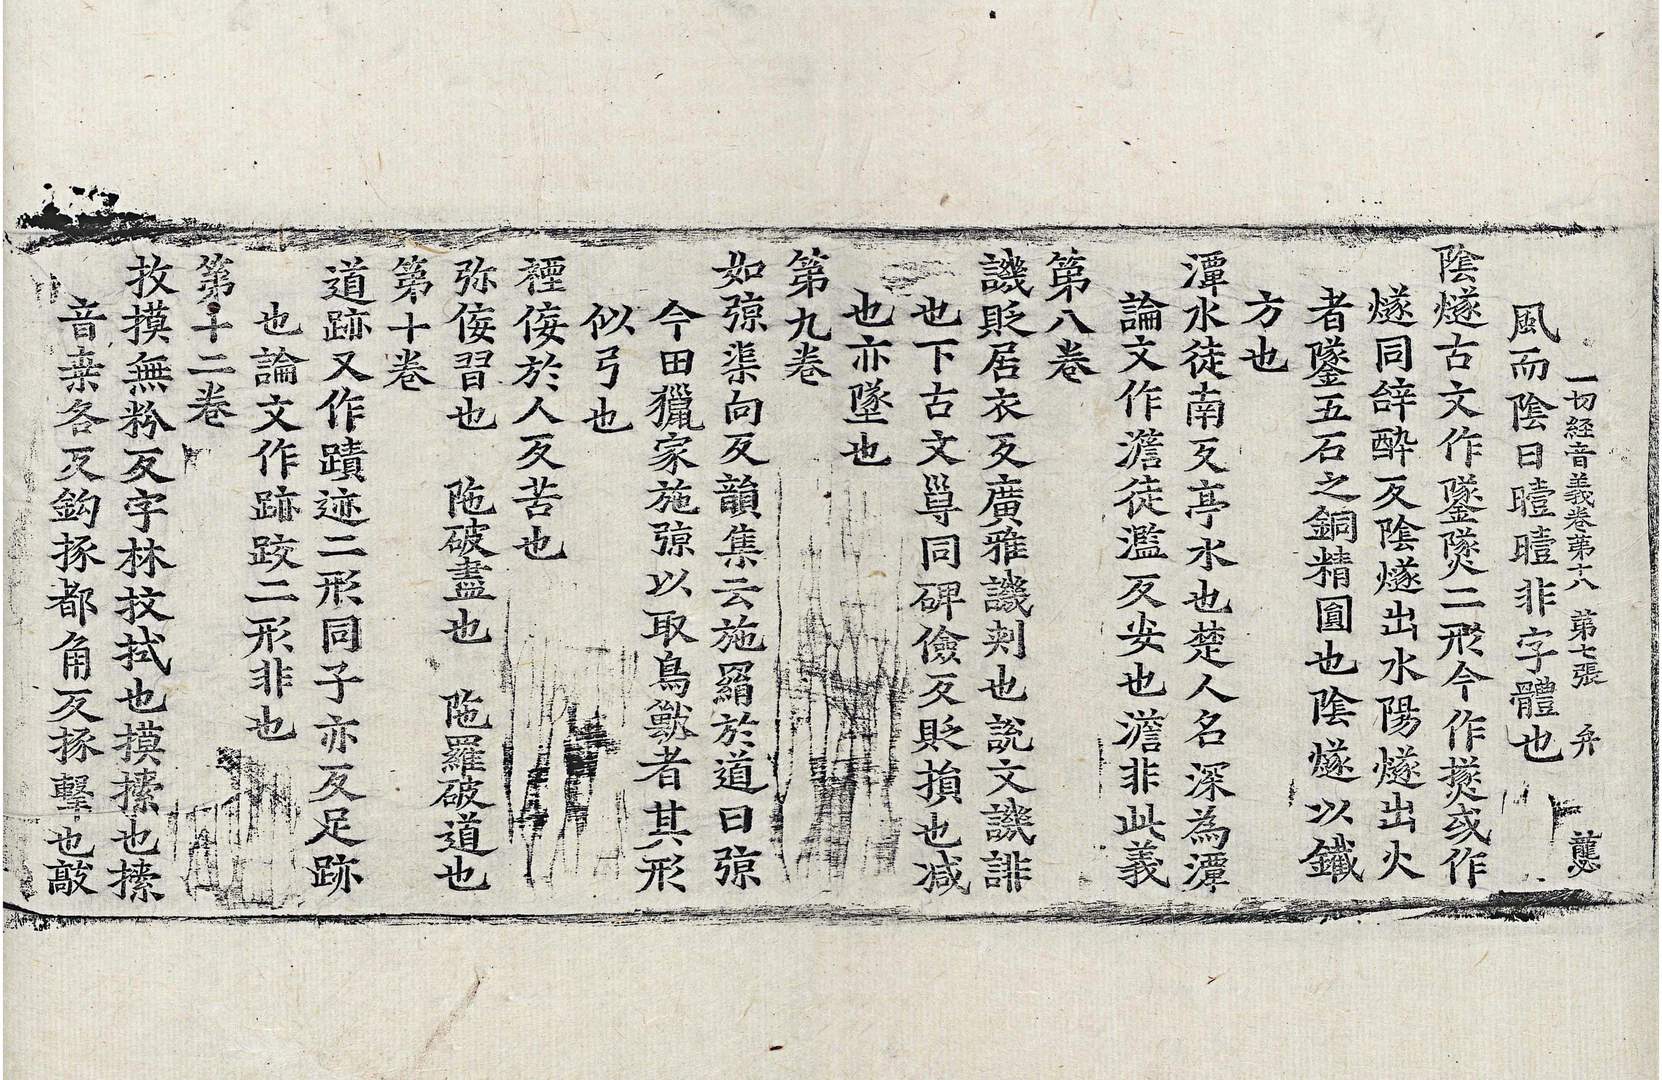 一切経音義卷第十八 第七張 弁 龔必
風而陰曰曀曀非字體也
陰燧古文作鐆㷭二形今作㸂或作
燧同辝醉反陰燧出水陽燧出火
者鐆五石之銅精圓也陰燧以鐵
方也
潭水徒南反亭水也楚人名深為潭
論文作澹徒濫反安也澹非此義
第八卷
譏貶居衣反廣雅譏刾也說文譏誹
也下古文㝵同碑儉反貶損也减
也亦墜也
第九卷
如弶渠向反韻集云施罥於道曰弶
今田獵家施弶以取鳥獸者其形
似弓也
𥚃㑄於人反苦也
弥㑄習也 陁破盡也 陁羅破道也
第十卷
道跡又作蹟迹二形同子亦反足跡
也論文作跡跤二形非也
第十二卷
抆摸無粉反字林抆拭也摸㨞也㨞
音桒各反鈎捄都角反捄擊也敲